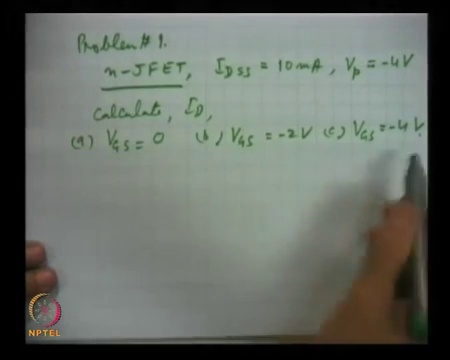 Problem # 1.
n-JFET, IDSS = 10mA, Vp = -4V
Calculate, ID,
(a) VGS = 0 (b) VGS = -2V (c) VGS = -4V.
NPTEL